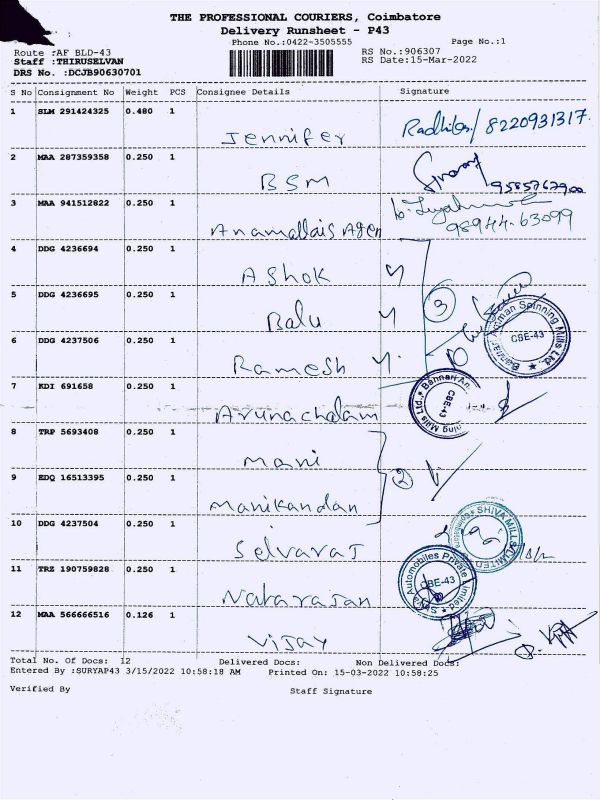 THE PROFESSIONAL COURIERS, Coimbatore
Delivery Runsheet - P43
Phone No.:0422-3505555
Page No.:1
Route :AF BLD-43
RS No.:906307
Staff :THIRUSELVAN
RS Date:15-Mar-2022
DRS No. :DCJB90630701
S No Consignment No Weight PCS Consignee Details Signature
1 SLM 291424325 0.480 1 Jennifer 8220931317
2 MAA 287359358 0.250 1 BSM
3 MAA 941512822 0.250 1 Anamallais Agen 98944-63099
4 DDG 4236694 0.250 1 Ashok
5 DDG 4236695 0.250 1 Balu 3
6 DDG 4237506 0.250 1 Ramesh
Bannari Amman Spinning Mills Ltd. CBE-43
7 KDI 691658 0.250 1 Arunachalam
8 TRP 5693408 0.250 1 Mani
9 EDQ 16513395 0.250 1 Manikandan 2
10 DDG 4237504 0.250 1 Selvaraj
SHIVA MILLS LIMITED
11 TRZ 190759828 0.250 1 Natarajan
Shiva Automobiles Private Limited CBE-43
12 MAA 566666516 0.126 1 Vijay
Total No. Of Docs: 12 Delivered Docs: Non Delivered Docs:
Entered By :SURYAP43 3/15/2022 10:58:18 AM Printed On: 15-03-2022 10:58:25
Verified By Staff Signature